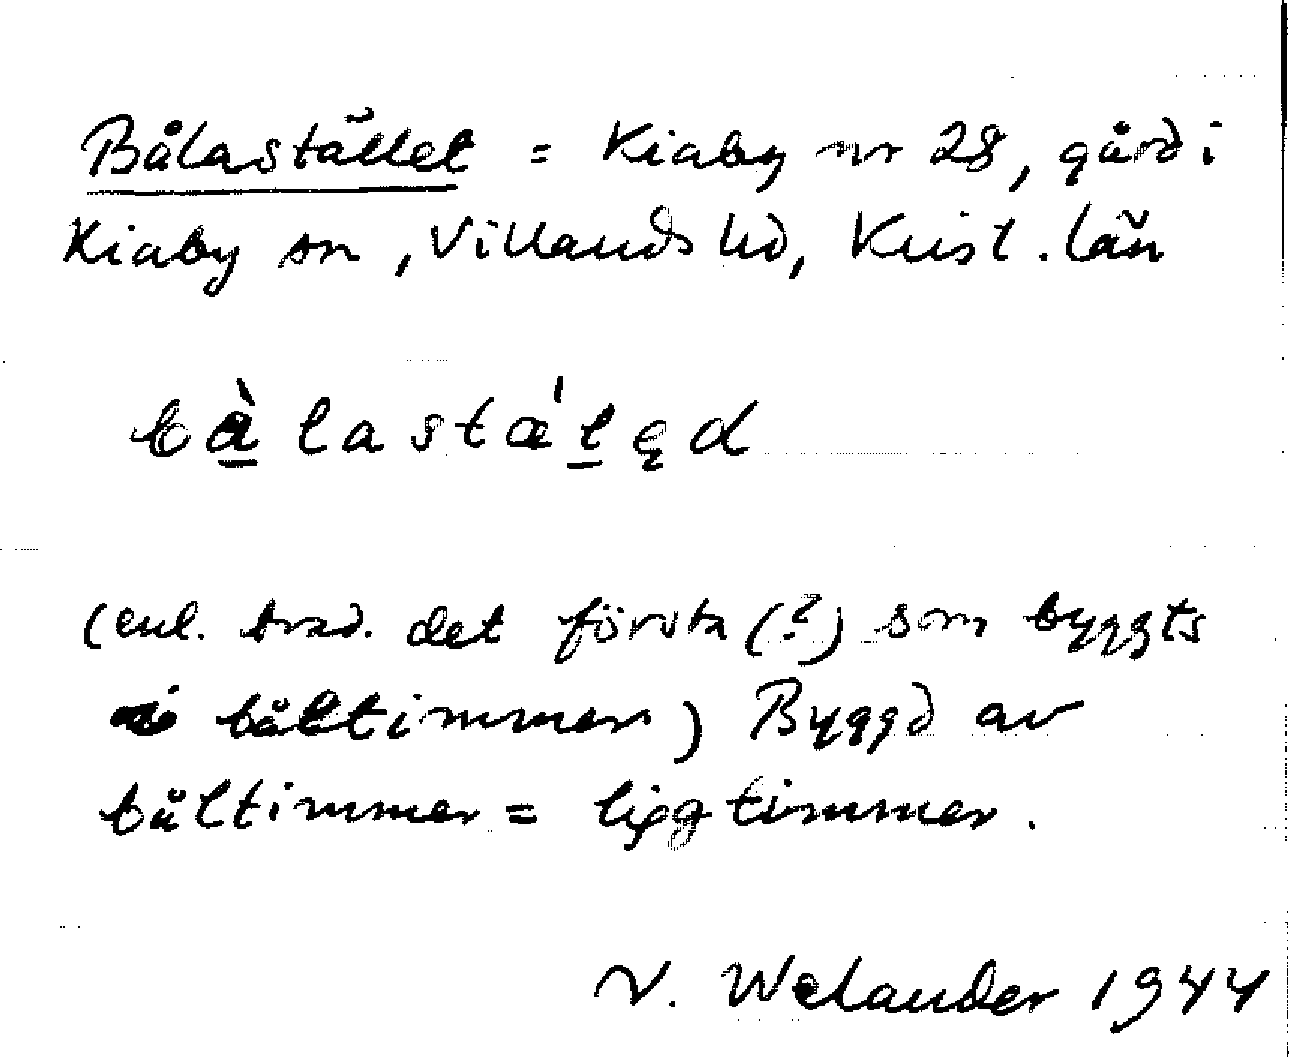 Bålastället = Kiaby nr 28, gård i
Kiaby sn, Villands hd, Krist. län
bà̱lastæ´ḻęd
(enl. trad. det första (?) som byggts
i båltimmer) Byggd av
båltimmer = liggtimmer.
N. Welander 1944